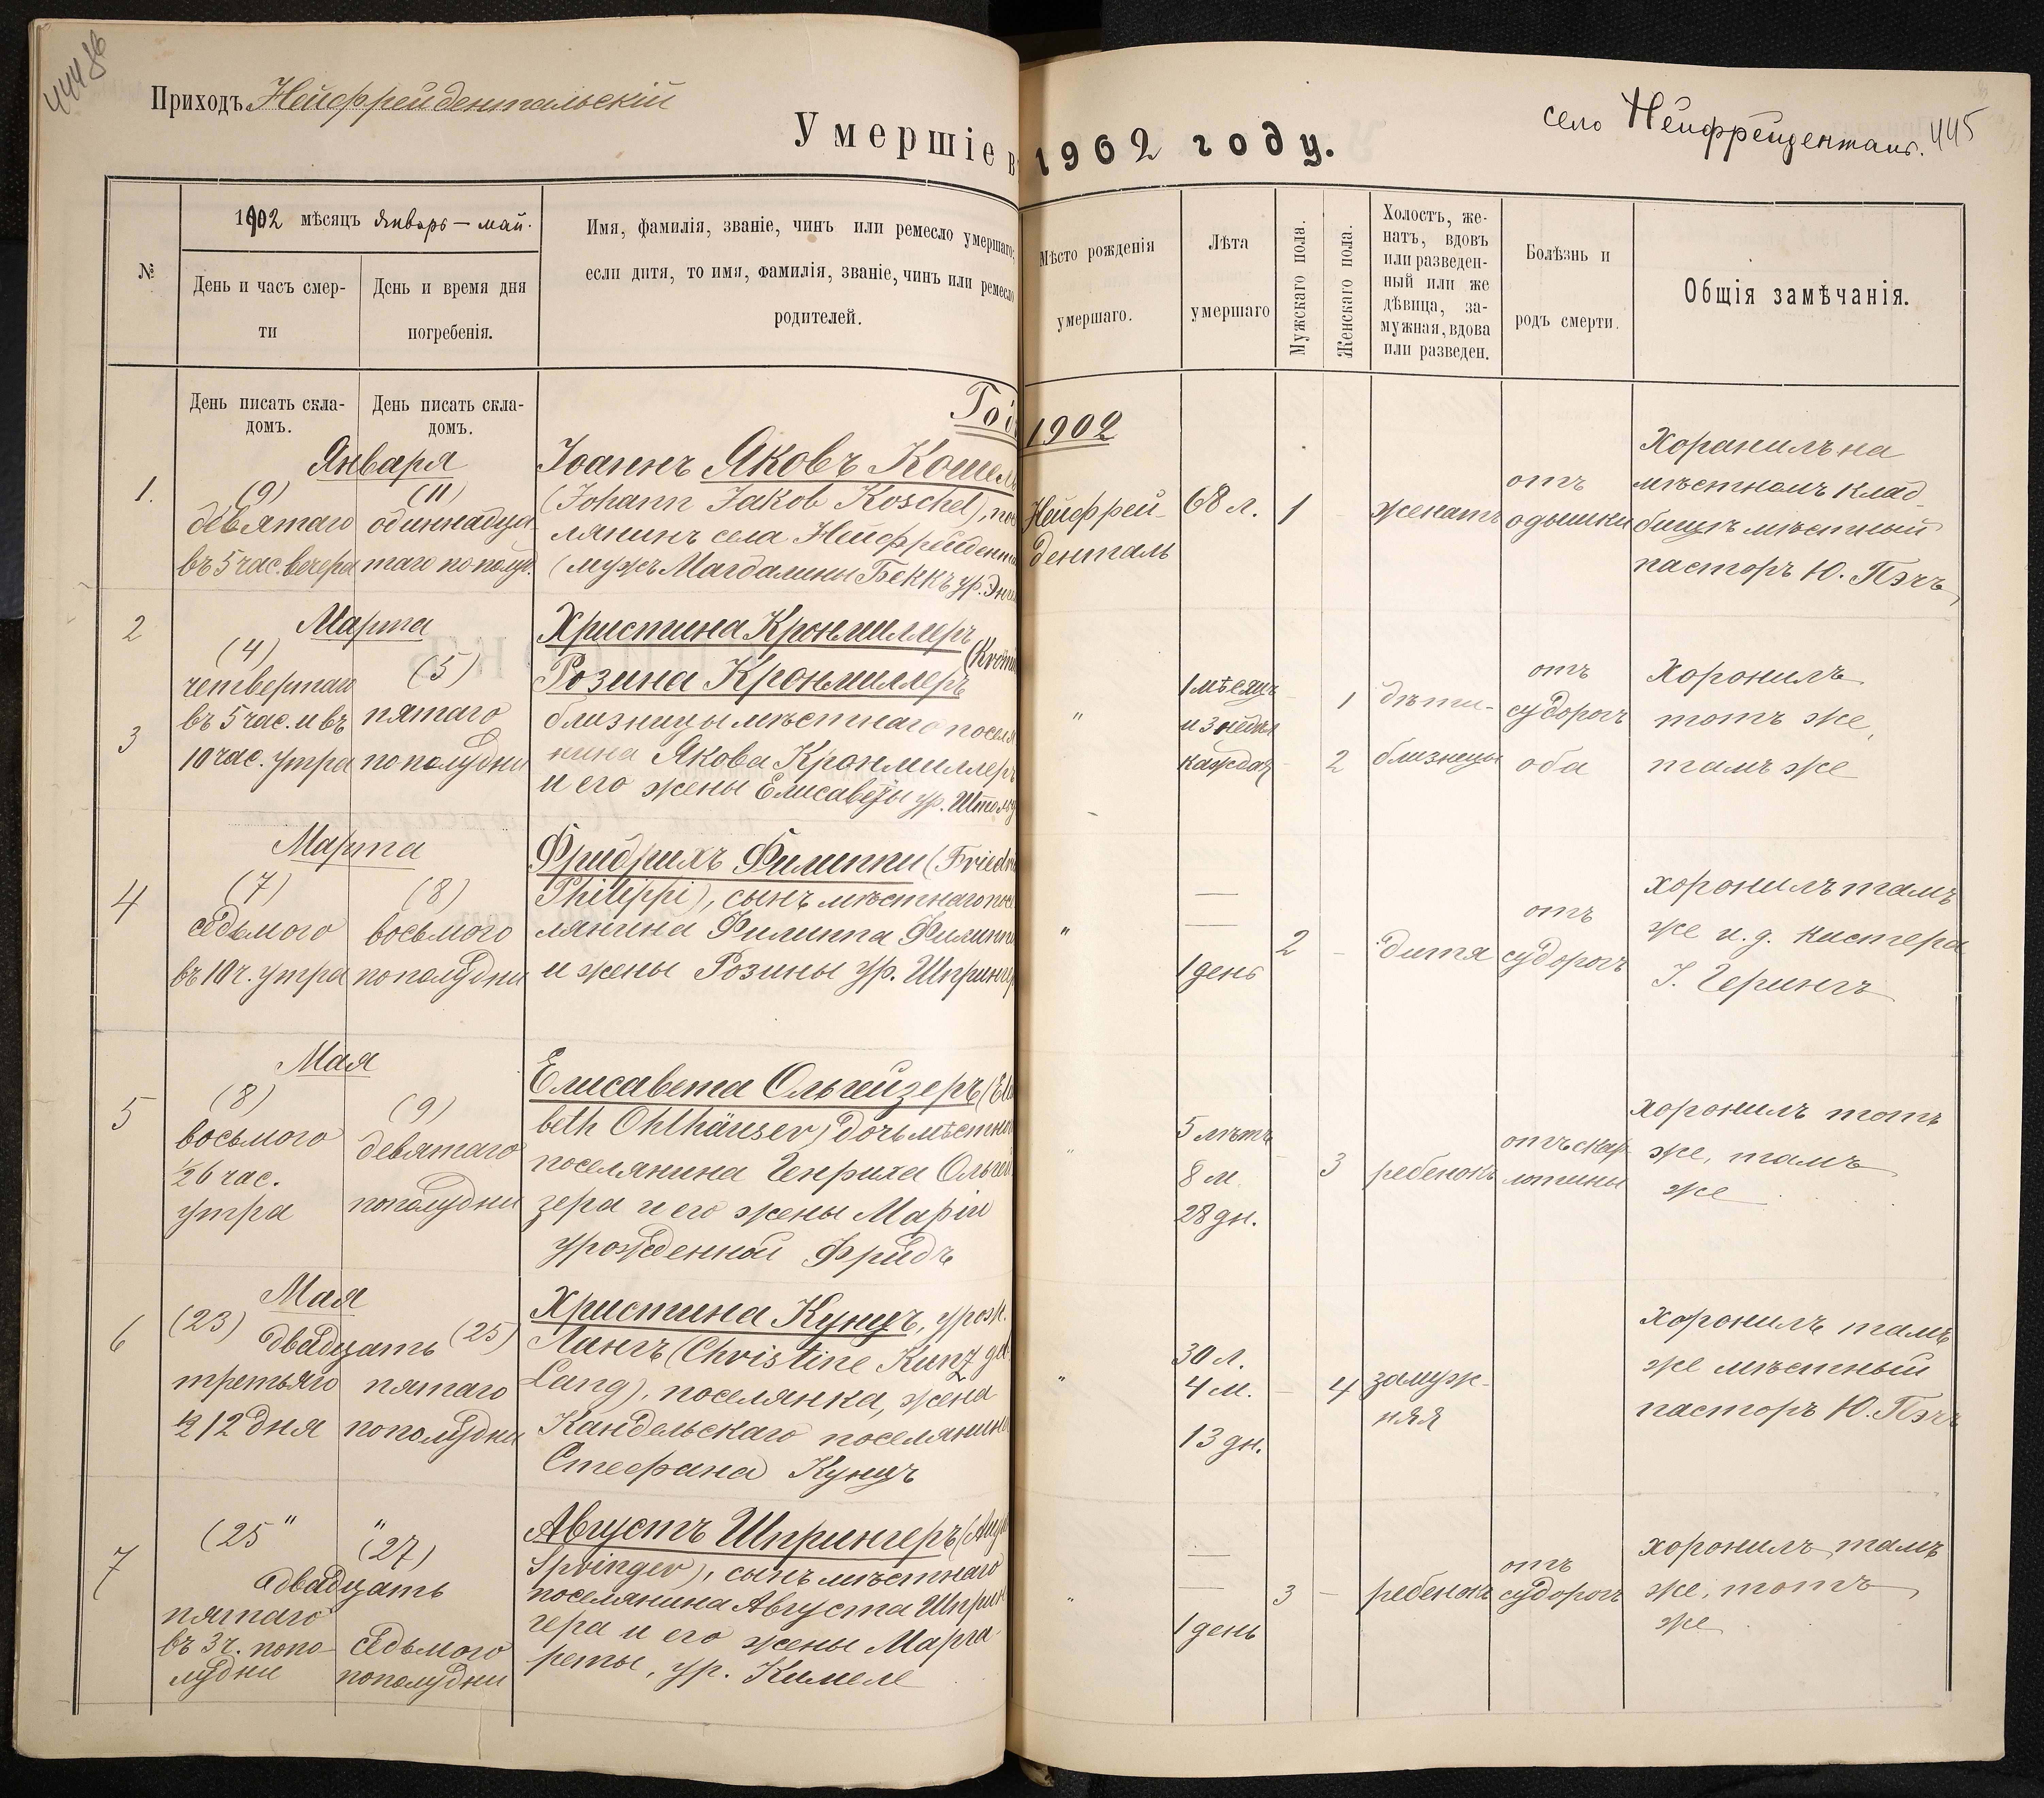 444 об
Приходъ Нейфрейдентальскій
Умершіе в
№
1902 мѣсяцъ Январь – май.
День и часъ смер-
ти
День и время дня
погребенія.
Имя, фамилія, званіе, чинъ или ремесло умершаго;
если дитя, то имя, фамилія, званіе, чинъ или ремесло
родителей.
День писать скла-
домъ.
День писать скла-
домъ.
Год
1.
Января
(9)
девятаго
въ 5 час. вечера
(11)
одиннадца
таго по полуд.
Іоаннъ Яковъ Кошель
(Johann Jakob Koschel), пос
лянинъ села Нейфрейдента
(мужъ Магдалины Беккъ ур. Энг
2
3
Марта
(4)
четвертаго
въ 5 час. и въ
10 час. утра
(5)
пятаго
пополудни
Христина Кронмиллеръ
(Kronm
Розина Кронмиллеръ
близницы мѣстнаго поселя
нина Якова Кронмиллеръ
и его жены Елисаветы ур. Штольц
4
Марта
(7)
седьмого
въ 10 ч. утра
(8)
восьмого
пополудни
Фридрихъ Филиппи (Friedr
Philippi), сынъ мѣстнаго посе
лянина Филиппа Филиппи
и жены Розины ур. Шпрингер
5
Мая
(8)
восьмого
½ 6 час.
утра
(9)
девятаго
пополудни
Елисавета Ольгейзеръ (Elisa
beth Ohlhäuser) дочь мѣстнаго
поселянина Генриха Ольгей
зера и его жены Маріи
урожденной Фридъ
6
Мая
(23)
двадцать
третьяго
½ 12 дня
(25)
пятаго
пополудни
Христина Кунцъ, урож.
Лангъ (Christine Kunz geb.
Lang), поселянка, жена
Кандельскаго поселянина
Стефана Кунцъ
7
(25 "
двадцать
пятаго
въ 3 ч. попо-
лудни
"
(27)
седьмого
пополудни
Августъ Шпрингеръ (Aug
Springer), сынъ мѣстнаго
поселянина Августа Шприн
гера и его жены Марга-
реты, ур. Кимеле
село Нейфрейденталь. 445
1902 году.
Мѣсто рожденія
умершаго.
Лѣта
умершаго
Мужскаго пола.
Женскаго пола.
Холостъ, же-
натъ, вдовъ
или разведен-
ный или же
дѣвица, за-
мужная, вдова
или разведен.
Болѣзнь и
родъ смерти.
Общія замѣчанія.
1902
Нейфрей-
денталь
68 л.
1
-
женатъ
отъ
одышки
Хоранилъ на
мѣстномъ клад-
бищѣ мѣстный
пасторъ Ю. Пэчъ
"
1 мѣсяцъ
и 3 недѣли
каждая
-
-
1
2
дѣти-
близницы
отъ
судорогъ
оба
Хоронилъ
тотъ же,
тамъ же
"
—
—
1 день
2
-
дитя
отъ
судорогъ
хоронилъ тамъ
же и. д. кистера
І. Герингъ
"
5 лѣтъ
8 м.
28 дн.
-
3
ребенокъ
отъ скар-
латины
хоронилъ тотъ
же, тамъ
же
"
30 л.
4 м.
13 дн.
-
4
замуж-
няя
хоронилъ тамъ
же мѣстный
пасторъ Ю. Пэчъ
"
—
—
1 день
3
-
ребенокъ
отъ
судорогъ
хоронилъ тамъ
же, тотъ
же